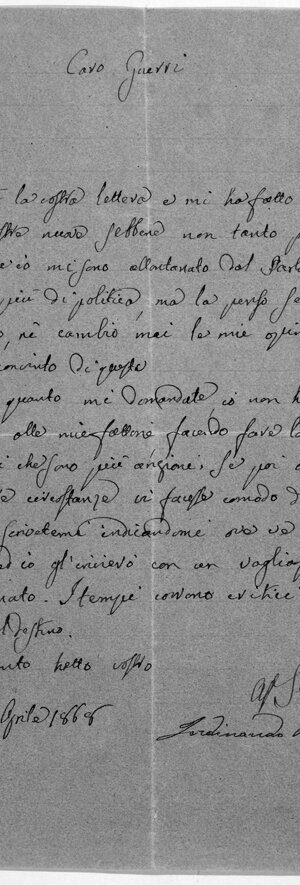 Caro Guerri
la vostra lettera e mi ha fatto
nuove sebbene non tanto
io mi sono allontanato dal Parl
più di politica, ma la penso se
nè cambiò mai la mie opin
convinto di queste
quanto mi domandate, io non h
alle mie fattorie facendo fare la
i che sono più anziane, se poi
circostanze vi facesse comodo d
scrivetemi indicandomi ove ve
ed io gl'invierò con un vaglia
nato. I tempi corrono critici
destino.
nto hetto vostro
Aprile 1868
Ferdinando